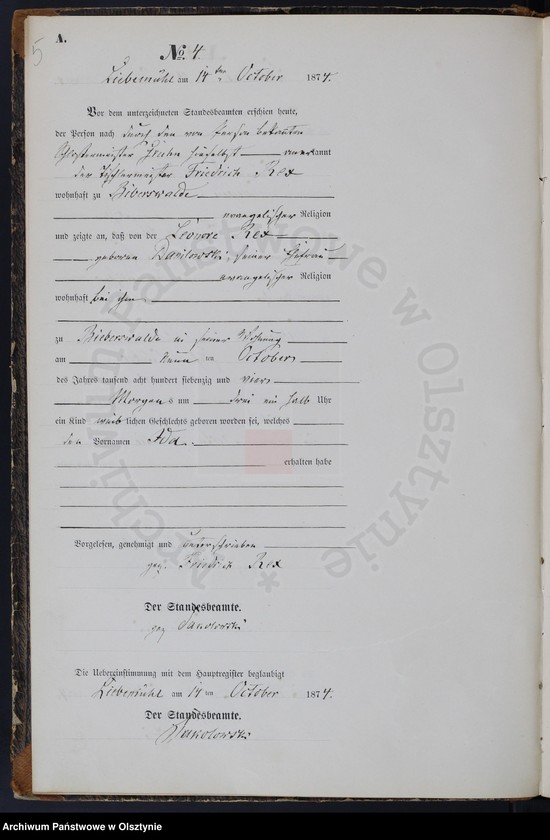 5
A.
No. 4.
Liebemühl am 14ten October 1874.
Vor dem unterzeichneten Standesbeamten erschien heute,
der Person nach durch den von Person bekannten
Schlossermeister hieselbst anerkannt
der Tischlermeister Friedrich Rex
wohnhaft zu Bieberswalde
evangelischer Religion
und zeigte an, daß von der Leonore Rex
geborene Danilowski, seiner Ehefrau
evangelischer Religion
wohnhaft bei ihm
zu Bieberswalde in seiner Wohnung
am neun ten Octobers
des Jahres tausend acht hundert siebenzig und vier
Morgens um drei ein halb Uhr
ein Kind weiblichen Geschlechts geboren worden sei, welches
den Vornamen Ida
erhalten habe
Vorgelesen, genehmigt und unterschrieben
gez. Friedrich Rex
Der Standesbeamte.
gez
Die Uebereinstimmung mit dem Hauptregister beglaubigt
Liebemühl am 14ten October 1874.
Der Standesbeamte.
Archiwum Państwowe w Olsztynie
Archiwum Państwowe w Olsztynie *